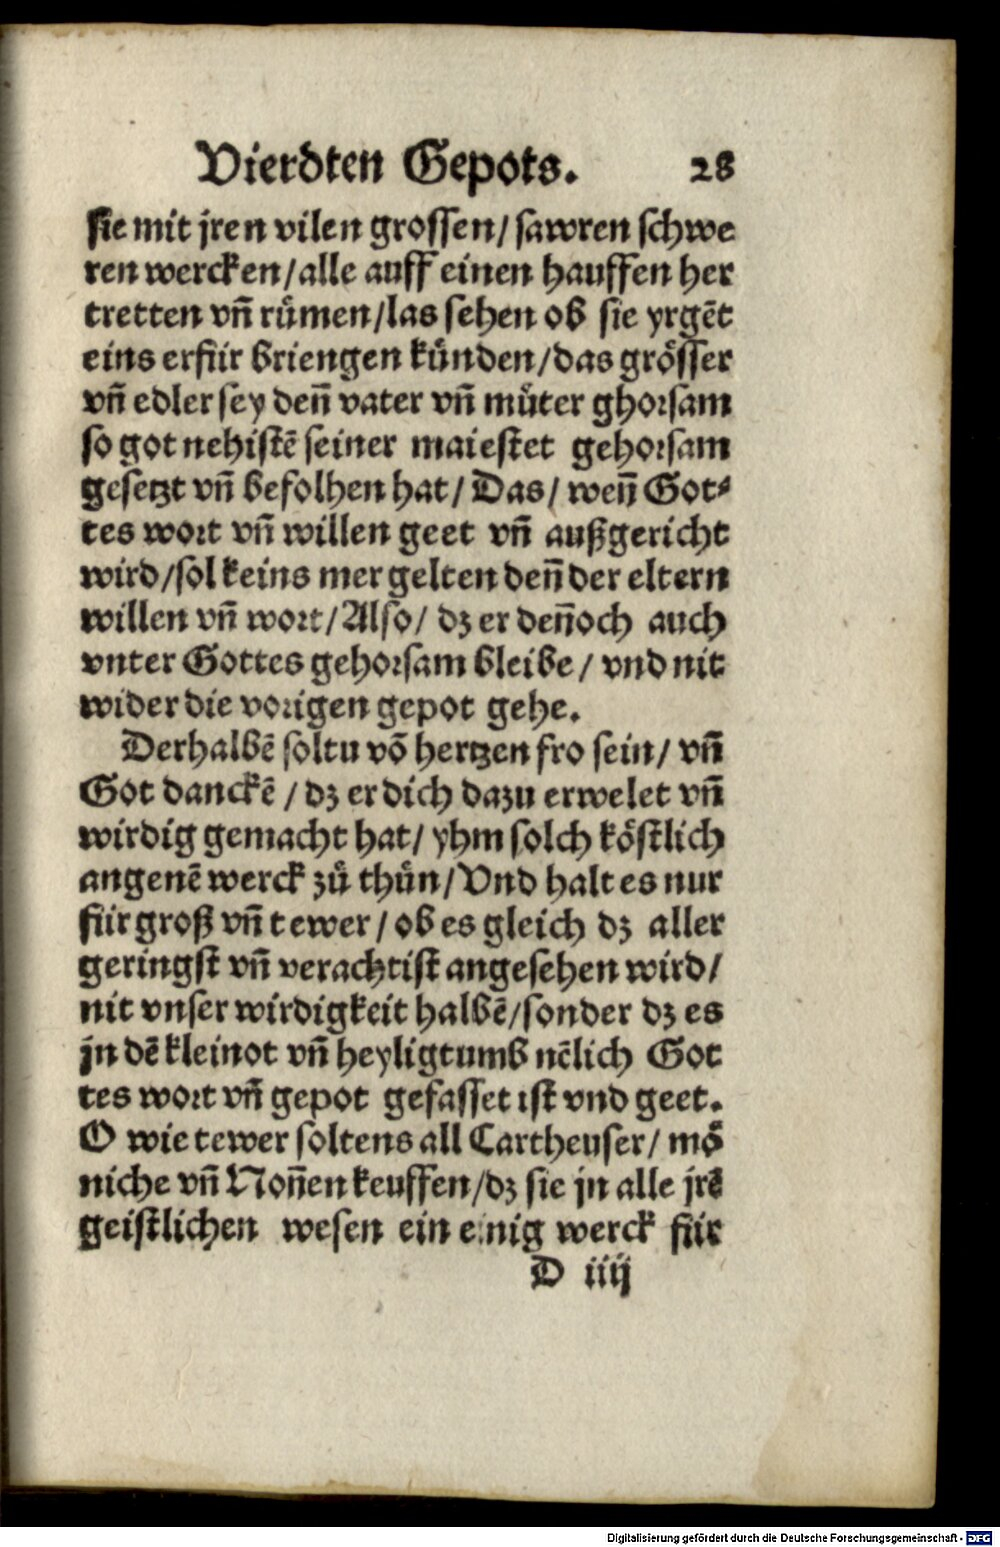 Vierdten Gepots. 28
sie mit jren vilen grossen/ sawren schwe
ren wercken/alle auff einen hauffen her
tretten vñ rümen/las sehen ob sie yrgẽt
eins erfür briengen künden/das grösser
vñ edler sey deñ vater vñ müter ghorsam
so got nehistẽ seiner maiestet gehorsam
gesetzt vñ befolhen hat/ Das/ weñ Got⸗
tes wort vñ willen geet vñ außgericht
wird/sol keins mer gelten deñ der eltern
willen vñ wort/Also/ dz er deñoch auch
vnter Gottes gehorsam bleibe/ vnd nit
wider die vorigen gepot gehe.
Derhalbẽ soltu võ hertzen fro sein/ vñ
Got danckẽ / dz er dich dazu erwelet vñ
wirdig gemacht hat/ yhm solch köstlich
angenẽ werck zů thůn/Vnd halt es nur
für groß vñ tewer/ ob es gleich dz aller
geringst vñ verachtist angesehen wird/
nit vnser wirdigkeit halbẽ/sonder dz es
jn dẽ kleinot vñ heyligtumb nẽlich Got
tes wort vñ gepot gefasset ist vnd geet.
O wie tewer soltens all Cartheuser/ mö
niche vñ Noñen keuffen/dz sie jn alle jrẽ
geistlichen wesen ein einig werck für
D iiij
Digitalisierung gefördert durch die Deutsche Forschungsgemeinschaft - DFG